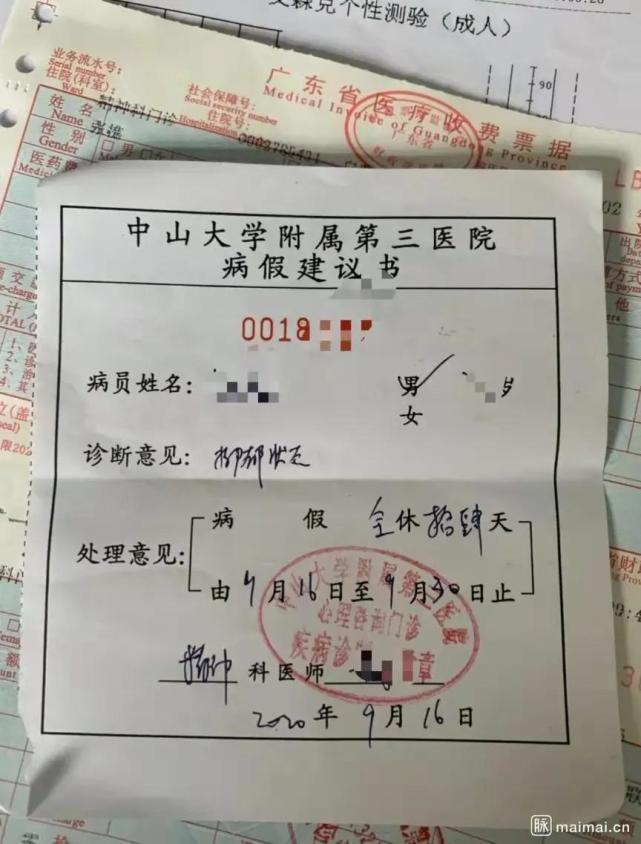 艾森克个性测验（成人）
90
80
业务流水号：
Serial number
住院(科室)：
Ward
精神科门诊
社会保障号：
Social security number
住院号：
Hospitalization
广东省医疗收费票据
Medical Invoice of Guangdong Province
姓名
Name
性别
Gender
男
医药费
中山大学附属第三医院
病假建议书
0018
病员姓名：
男 岁
女
诊断意见：抑郁状态
处理意见：
病假 全休拾肆天
由9月16日至9月30日止
中山大学附属第三医院
心理咨询门诊
疾病诊 章
精神科医师
2020年9月16日
脉 maimai.cn